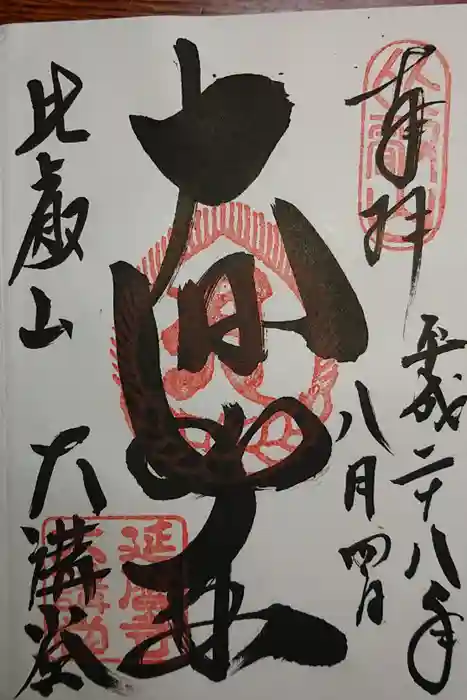 奉拝
平成二十八年
八月四日
大日如来
比叡山
大講堂
比叡山
延暦寺
大講堂